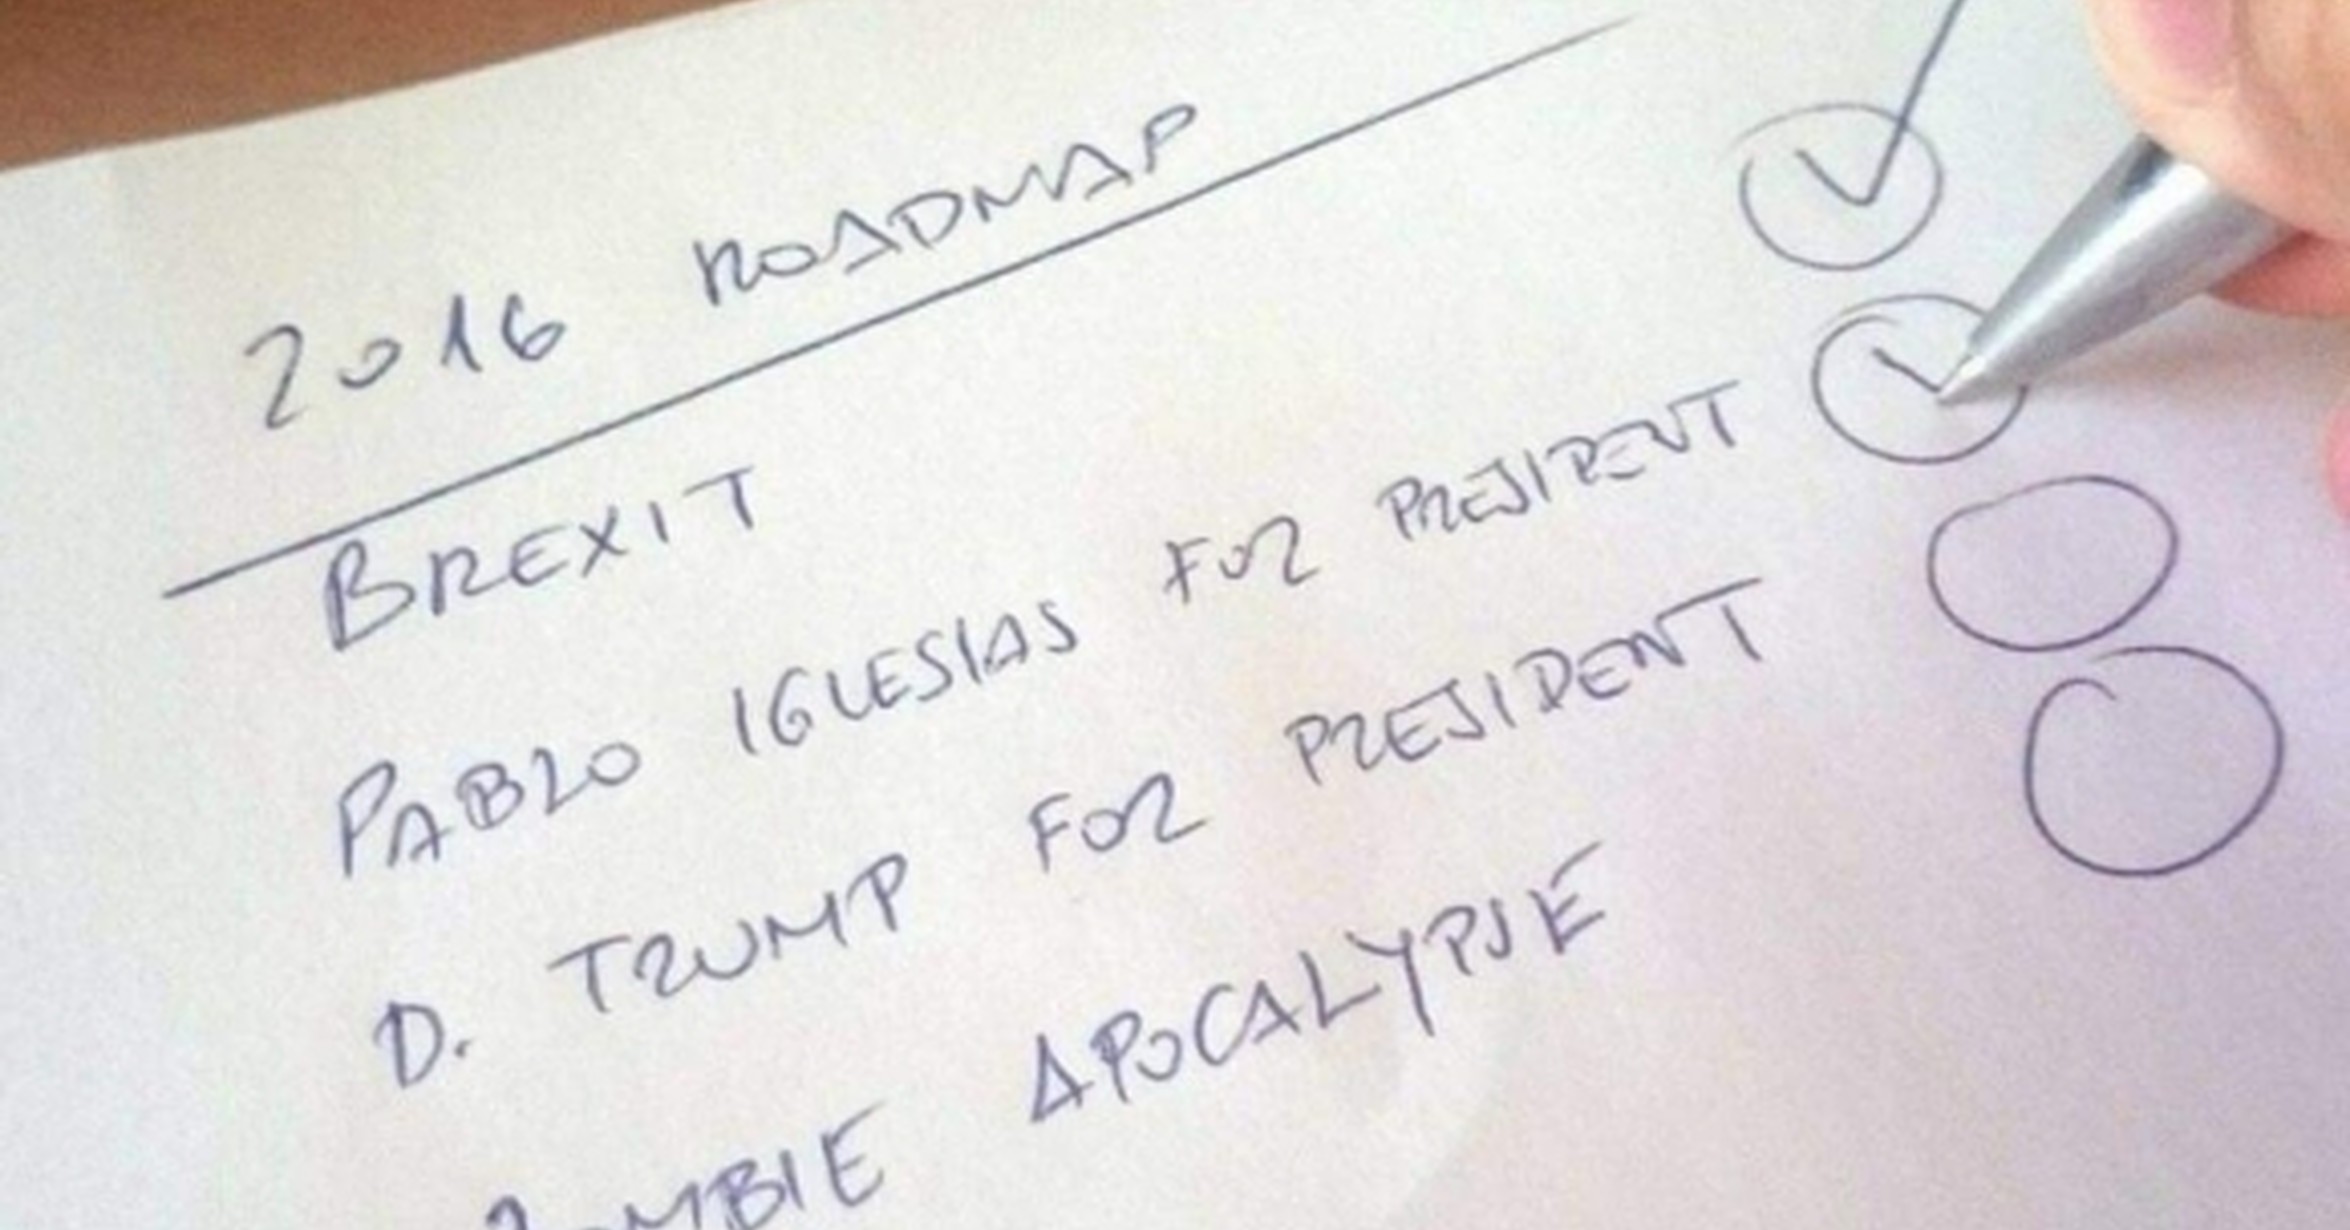 2016 ROADMAP
BREXIT
PABLO IGLESIAS FOR PRESIDENT
D. TRUMP FOR PRESIDENT
ZOMBIE APOCALYPSE